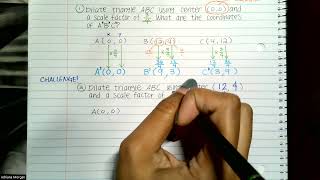 ① Dilate triangle ABC using center (0,0) and
a scale factor of 3/4. What are the coordinates
of A'B'C'?
x y
A(0,0) B(12,4) C(4,12)
A'(0,0) B'(9,3) C'(3,9)
CHALLENGE!
② Dilate triangle ABC using center (12,4)
and a scale factor of
A(0,0)
Adriana Morgan